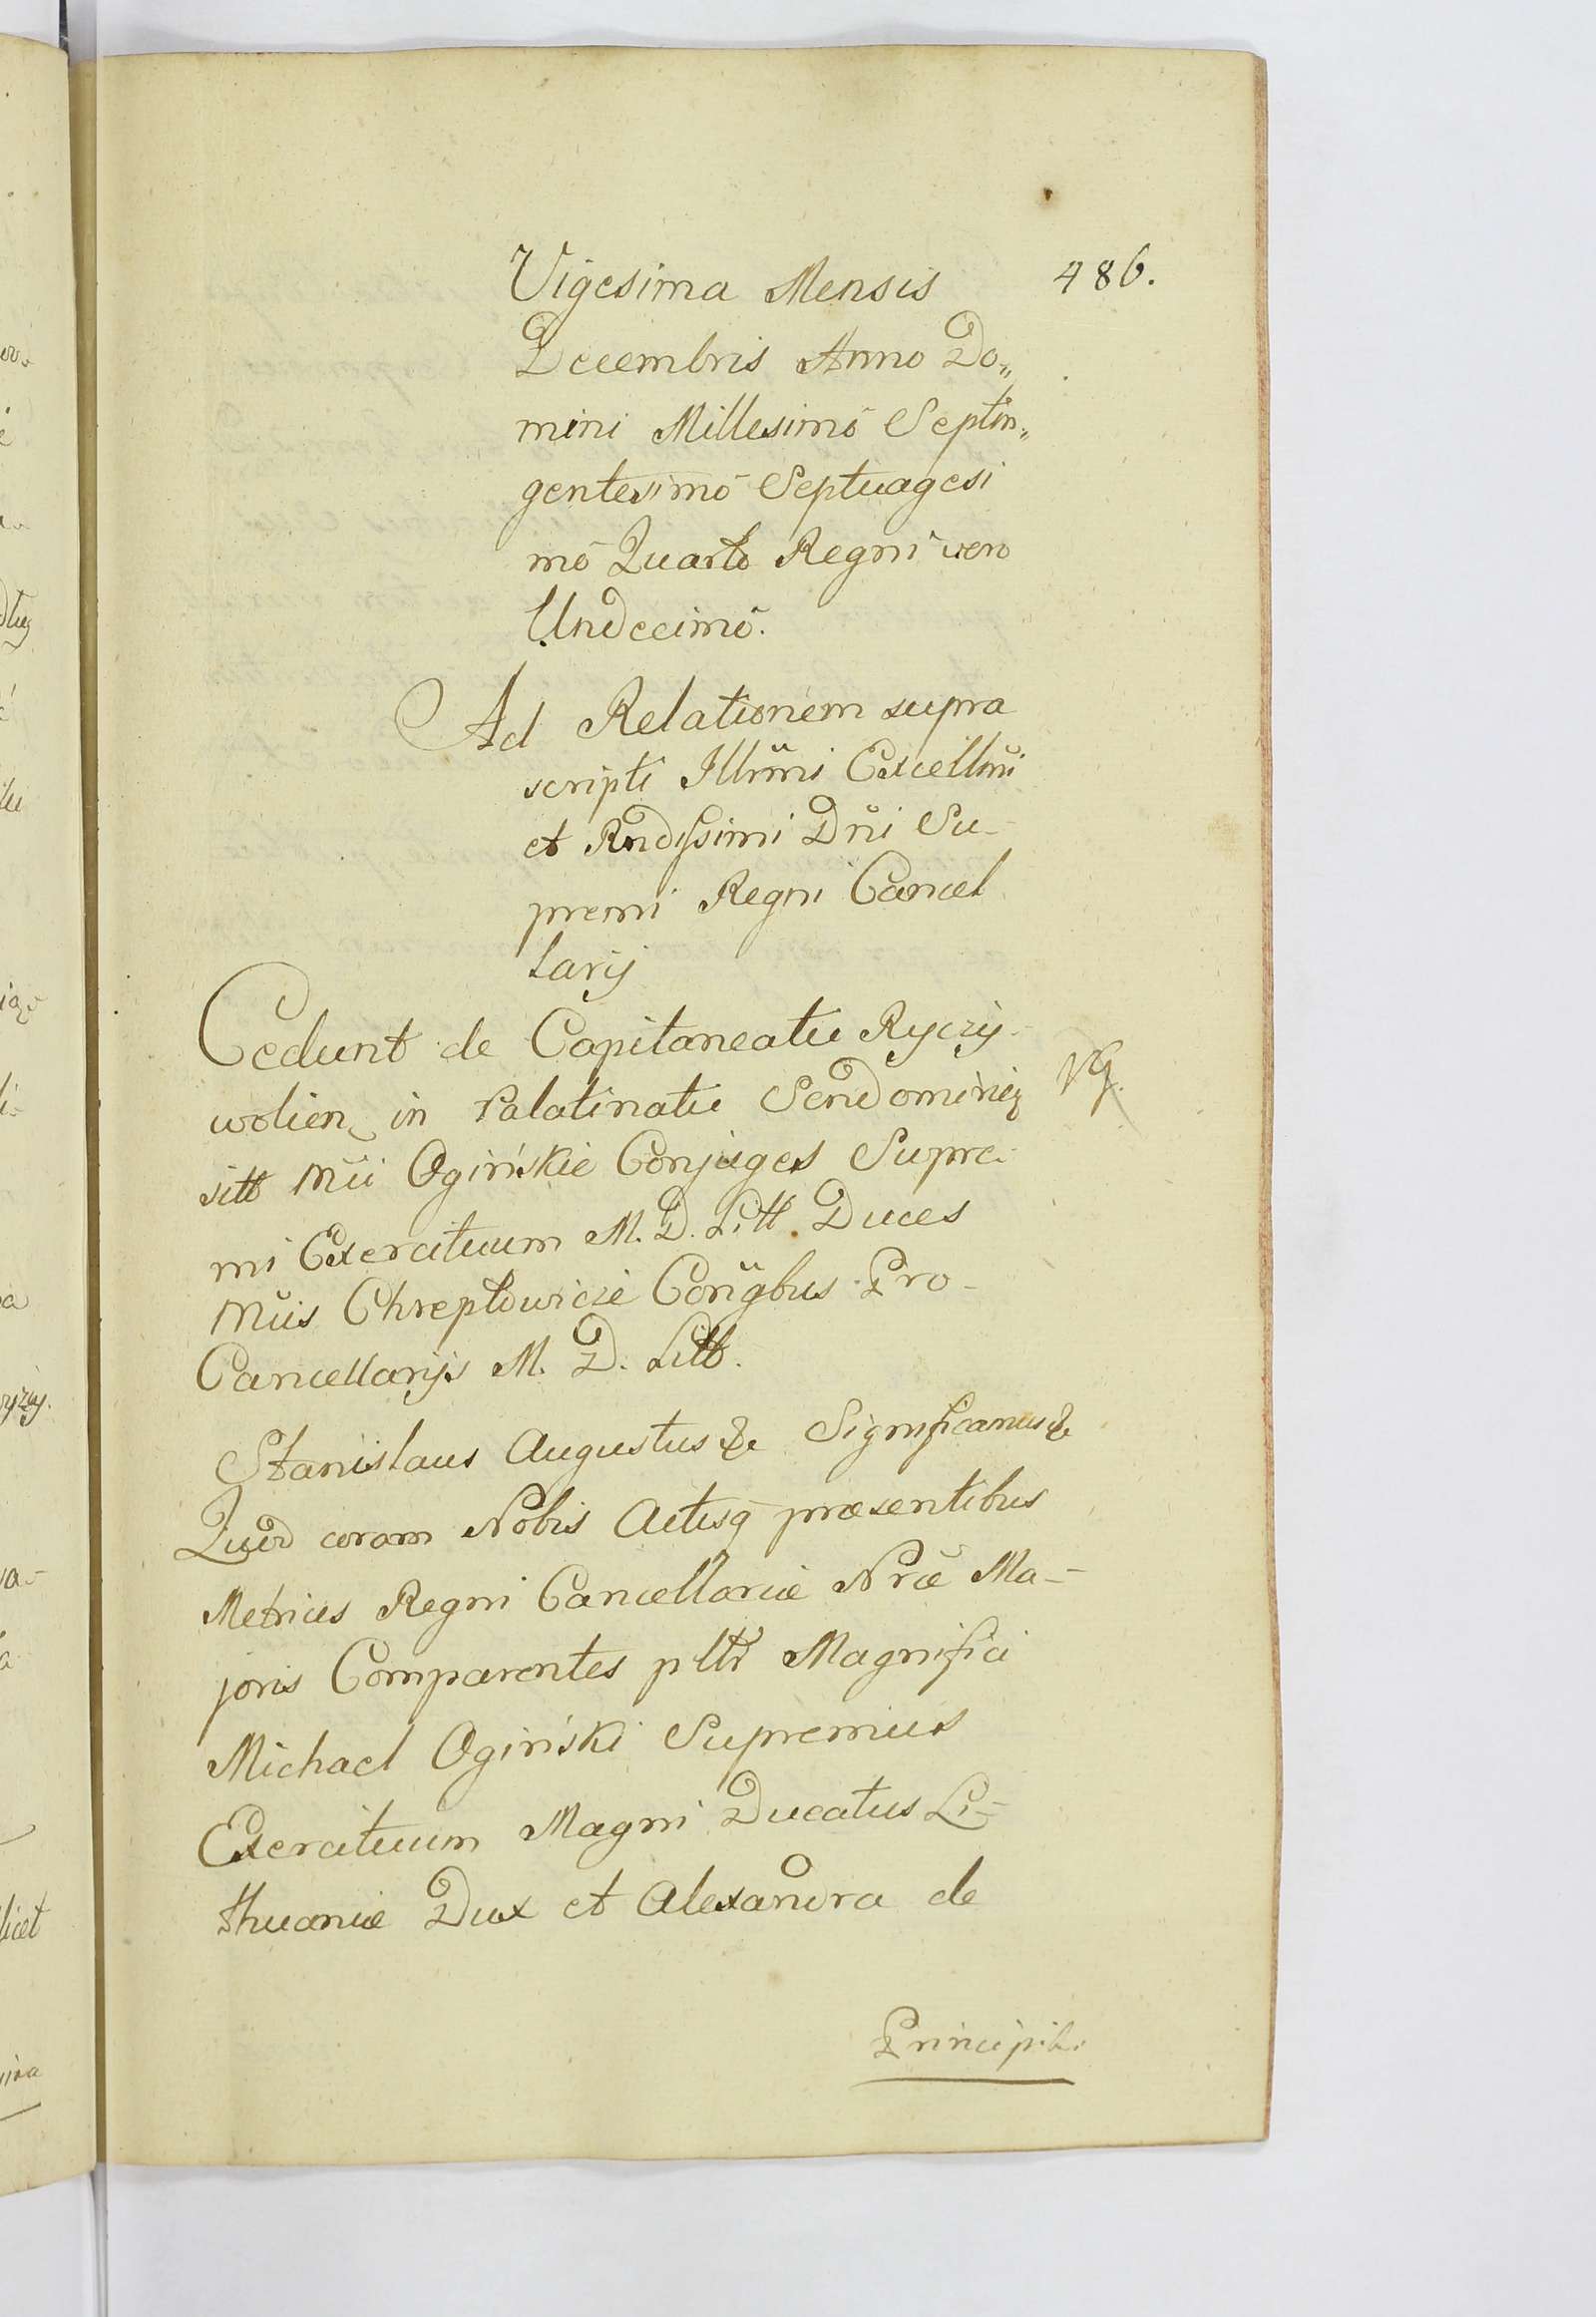 Vigesima Mensis
486.
Decembris Anno Do„
mini Millesimō Septin„
gentesimō Septuagesi
mō Quarto Regni vero
Undecimō.
Ad Relationem supra
scripti Illm̃i Excellm̃i
et Rndissimi Dñi Su-
premi Regni Cancel
larij
Cedunt de Capitaneatu Ryczy-
wolien in Palatinatu Sendomirien
sitt Mĩi Ogińskie Conjuges Supre-
mi Exercituum M. D. Litt. Duces
Mĩis Chreptowicze Coñgbus Pro-
Cancellarijs M. D. Litt.
Stanislaus Augustus &c Significamus &c
Quod coram Nobis Actisq̃ præsentibus
Metrices Regni Cancellariæ Nræ̃ Ma-
joris Comparentes pltr̃ Magnifici
Michael Ogiński Supremus
Exercituum Magni Ducatus Li-
thuaniæ Dux et Alexandra de
Principib.